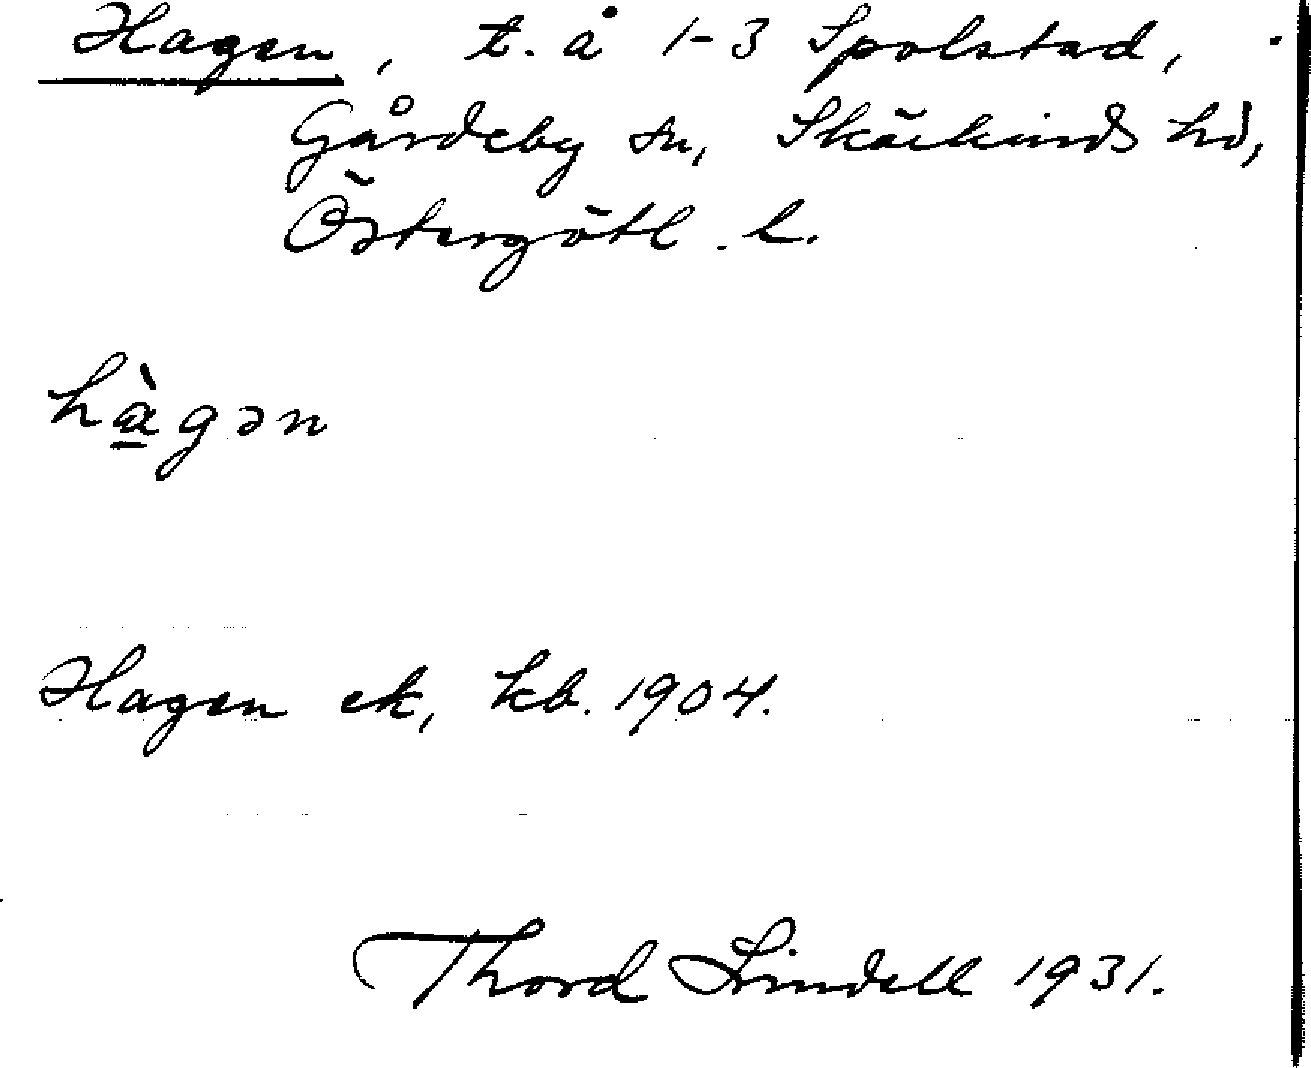 Hagen, t. å 1-3 Spolstad,
Gårdeby sn, Skärkinds hd,
Östergötl. l.
hàgən
Hagen ek, kb. 1904.
Thord Lindell 1931.